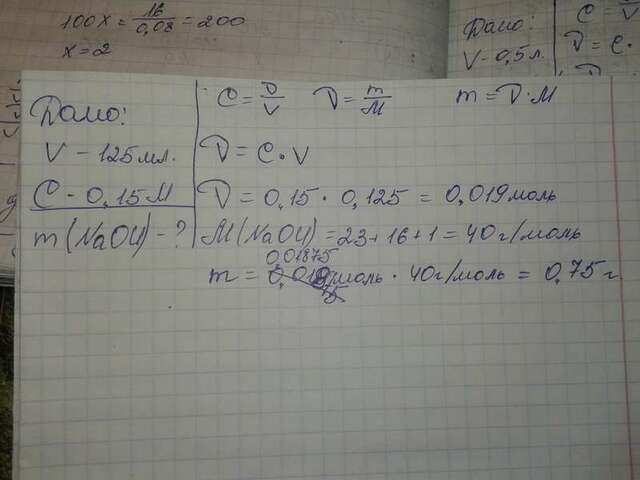 100x = 16/0,08 = 200
x = 2
Дано:
V - 125 мл.
C - 0,15 М
m (NaOH) - ?
C = ν/V ν = m/M m = ν · M
ν = C · V
ν = 0,15 · 0,125 = 0,019 моль
M (NaOH) = 23 + 16 + 1 = 40 г/моль
0,01875
m = 0,019 моль · 40 г/моль = 0,75 г.
Дано:
V - 0,5 л.
C = ν/V
ν = C ·